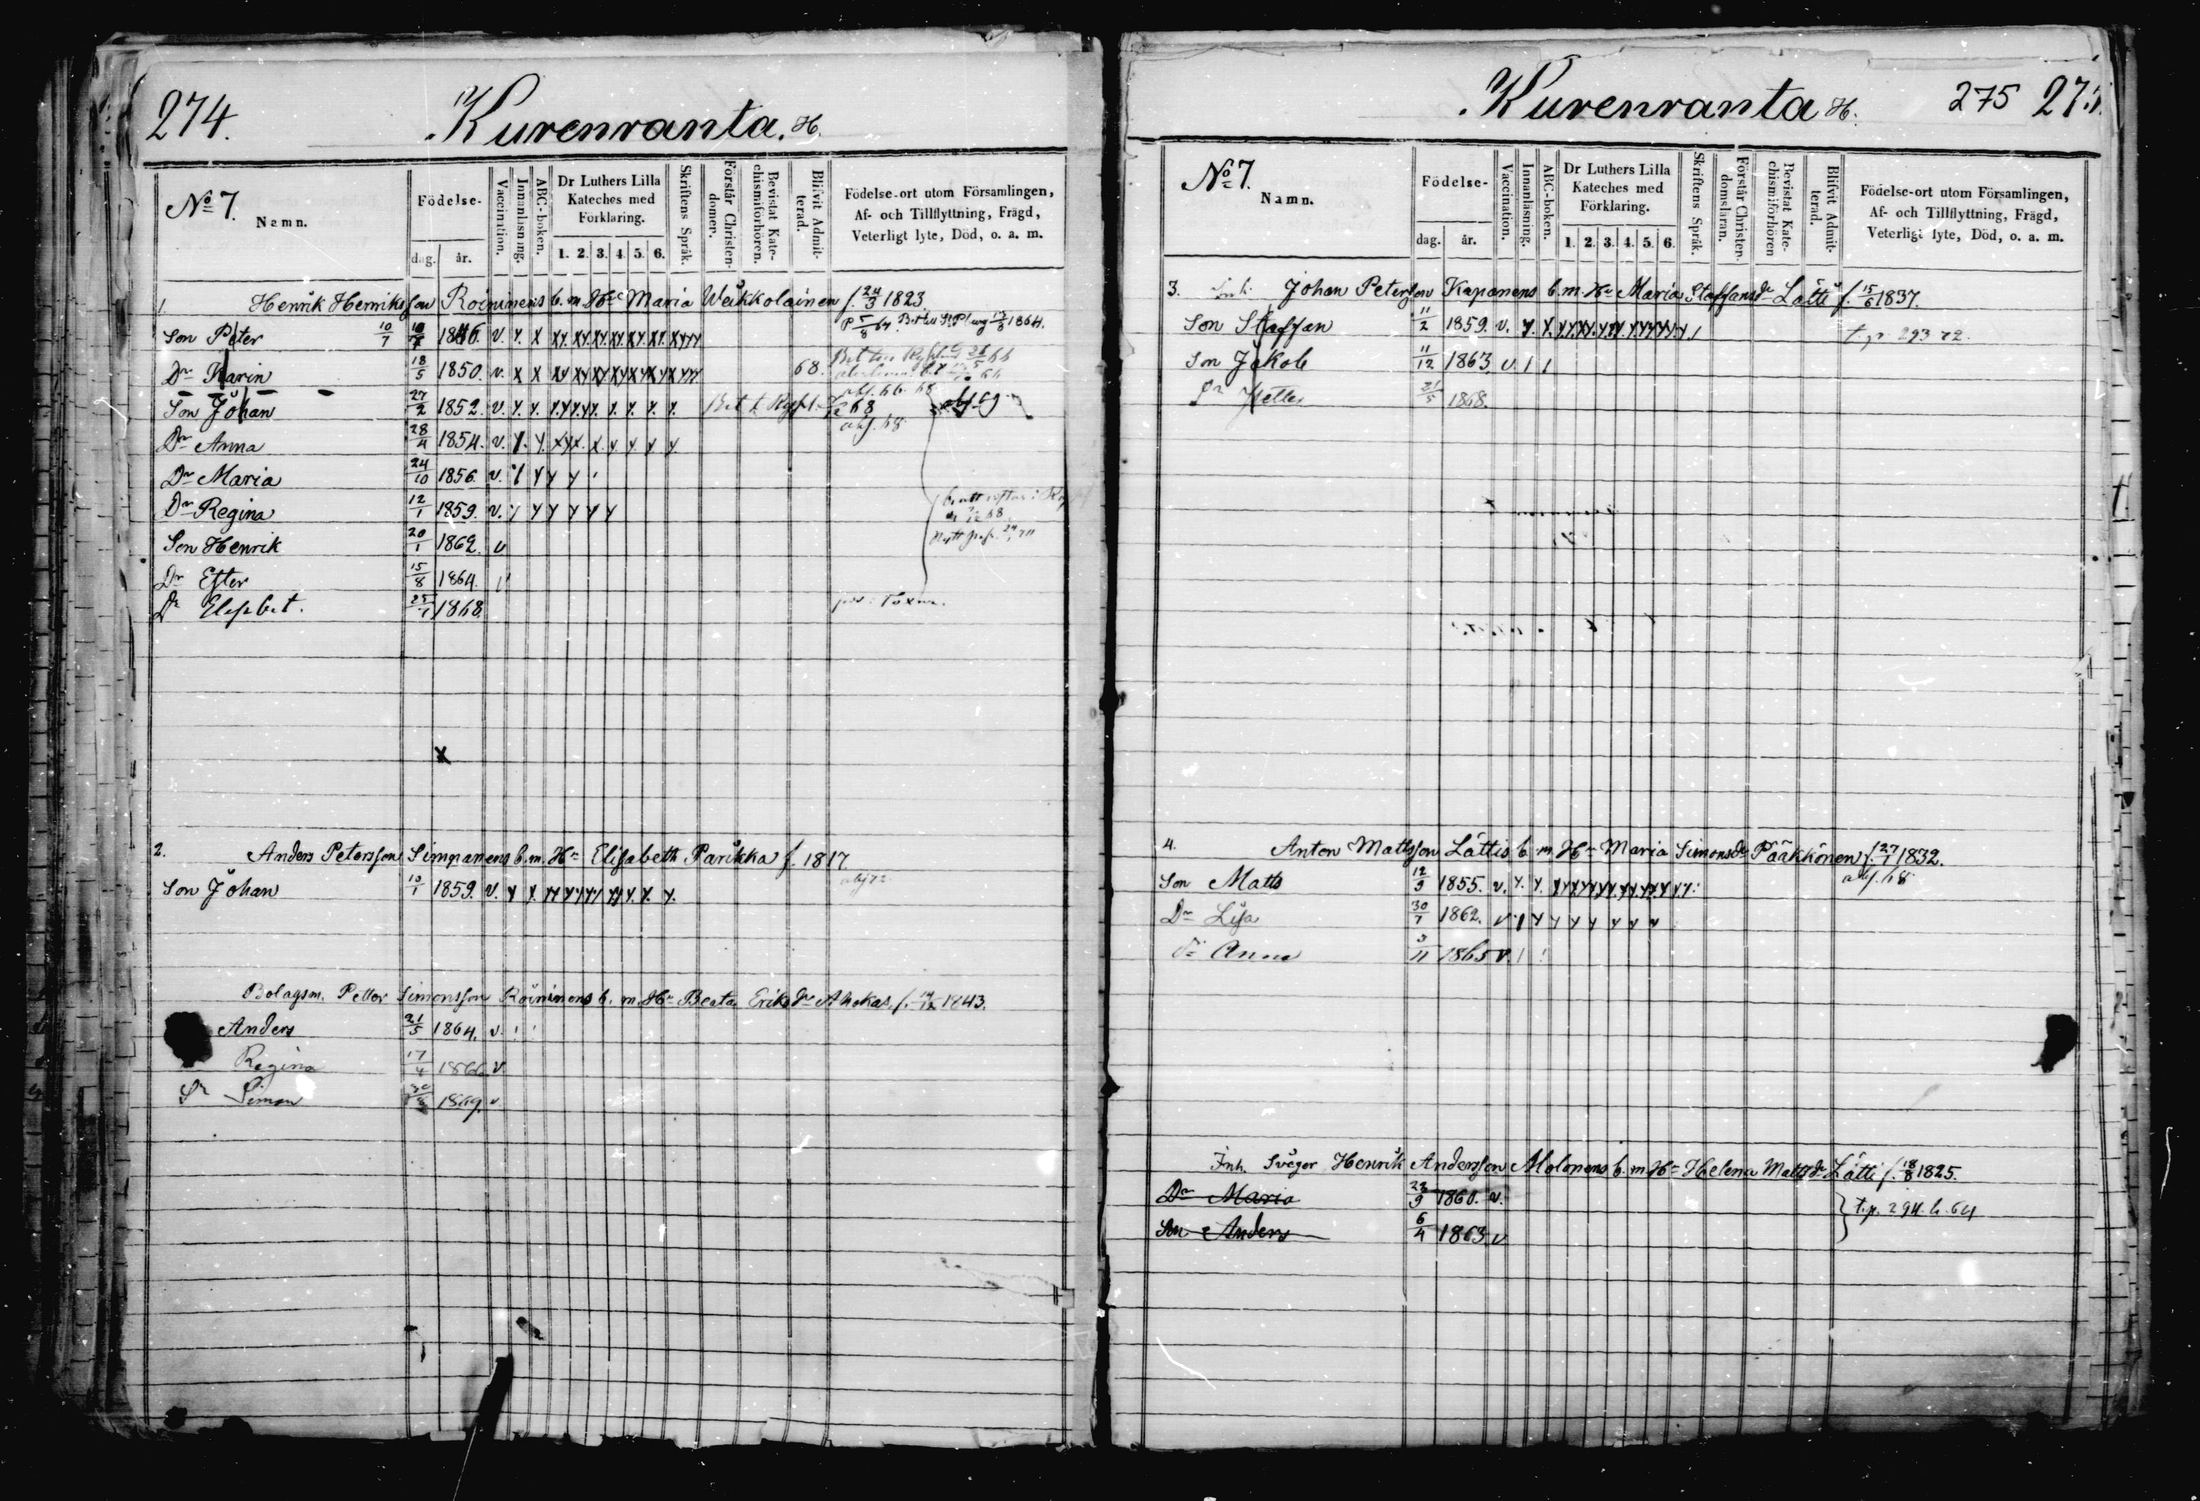 274.
Kurenranta. H.
No 7.
Namn.
Födelse-
dag. år.
Vaccination.
Innanläsning.
ABC-boken.
Dr Luthers Lilla Kateches med Förklaring.
1. 2. 3. 4. 5. 6.
Skriftens Språk.
Förstår Christendomer.
Bevistat Katechismiförhören.
Blifvit Admitterad.
Födelse-ort utom Församlingen,
Af- och Tillflyttning, Frägd,
Veterligt lyte, Död, o. a. m.
1. Henrik Henriksson Roininens b. m. Hu Maria Weikkolainen f. 24/3 1823
Son Peter 10/7 1846. v. y. x
Dr Karin 18/5 1850. v. x x 68.
Son Johan 27/2 1852. v. y. y. 68 abf. 69
Dr Anna 28/4 1854. v. y. y. abf. 68
Dr Maria 24/10 1856. v.
Dr Regina 12/1 1859. v.
Son Henrik 20/1 1862. v
Dr Ester 15/8 1864.
Dr Elisabet. 25/1 1868.
x
2. Anders Petersson Simpanens b. m. Hu Elisabeth Parikka f. 1817
Son Johan 10/1 1859. v. abf 72
Bolagsm. Petter Simonsson Roininens b. m. Hu Beata Eriksdr Ahokas, f. 1843.
Anders 21/5 1864. v.
Regina 17/4 1866 v
Simon 1869. v
Kurenranta H.
275 275
No 7.
Namn.
Födelse-
dag. år.
Vaccination.
Innanläsning.
ABC-boken.
Dr Luthers Lilla Kateches med Förklaring.
1. 2. 3. 4. 5. 6.
Skriftens Språk.
Förstår Christendomslaran.
Bevistat Katechismiförhören
Blifvit Admitterad.
Födelse-ort utom Församlingen,
Af- och Tillflyttning, Frägd,
Veterligt lyte, Död, o. a. m.
3. Inh. Johan Petersson Kapanens b. m. Hu Maria Staffansdr Lätti f. 15/6 1837.
Son Staffan 11/2 1859. v. y. x. t. p. 293 72.
Son Jakob 11/12 1863. v.
Petter 21/5 1868.
4. Anton Mattsson Lättis b. m. Hu Maria Simonsdr Pääkkönen f. 27/1 1832.
Son Matts 12/9 1855. v. y. y. abf. 68
Dr Lisa 30/7 1862. v
Dr Anna 3/11 1865 v.
Inh. Svåger Henrik Andersson Molonens b. m. Hu Helena Mattsdr Lätti f. 18/8 1825.
Dr Maria 22/9 1860. v.
Son Anders 6/4 1863. v
t. p. 294. b. 64